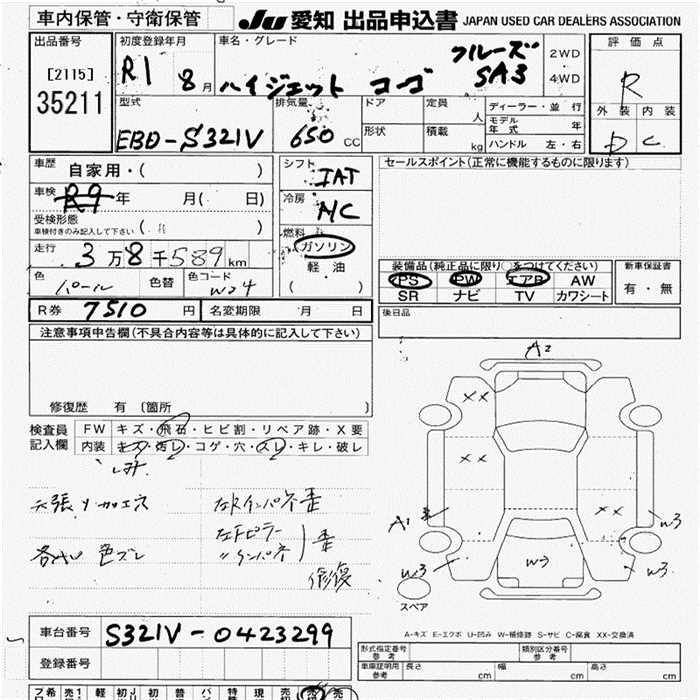 車内保管・守衛保管
JU 愛知 出品申込書 JAPAN USED CAR DEALERS ASSOCIATION
出品番号
[2115]
35211
初度登録年月
R1 8月
車名・グレード
ハイジェット カーゴ
クルーズ
SA3
2WD
4WD
評価点
R
外装 内装
D C
型式
EBD-S321V
排気量
650 CC
ドア
形状
定員
人
積載
kg
ディーラー・並行
モデル年式 年
ハンドル 左・右
車歴
自家用・( )
車検
R9年 月( 日)
受検形態
車検付きのみ記入して下さい ( )
走行
3万8千589km
色
パール
色替
色コード
W24
シフト
IAT
冷房
MC
燃料
ガソリン
軽油
( )
セールスポイント(正常に機能するものに限ります)
装備品(純正品に限り○をつけてください)
PS PW エアB AW
SR ナビ TV カワシート
新車保証書
有・無
後日品
R券 7510円
名変期限 月 日
注意事項申告欄(不具合内容等は具体的に記入して下さい)
修復歴 有 〔箇所 〕
検査員
記入欄
FW キズ・飛石・ヒビ割・リペア跡・X要
内装 キズ・汚レ・コゲ・穴・スレ・キレ・破レ
天張り
左Rインパネ歪
左Fピラー
〃インパネ
歪
修復
各AW 色ズレ
A2
XX
XX
XX
A1
W3
W3
W3
W3
スペア
A-キズ E-エクボ U-凹み W-補修跡 S-サビ C-腐食 XX-交換済
車台番号 S321V-0423299
登録番号
形式指定番号
参考
類別区分番号
参考
車庫証明用
参考
長さ cm
幅 cm
高さ cm